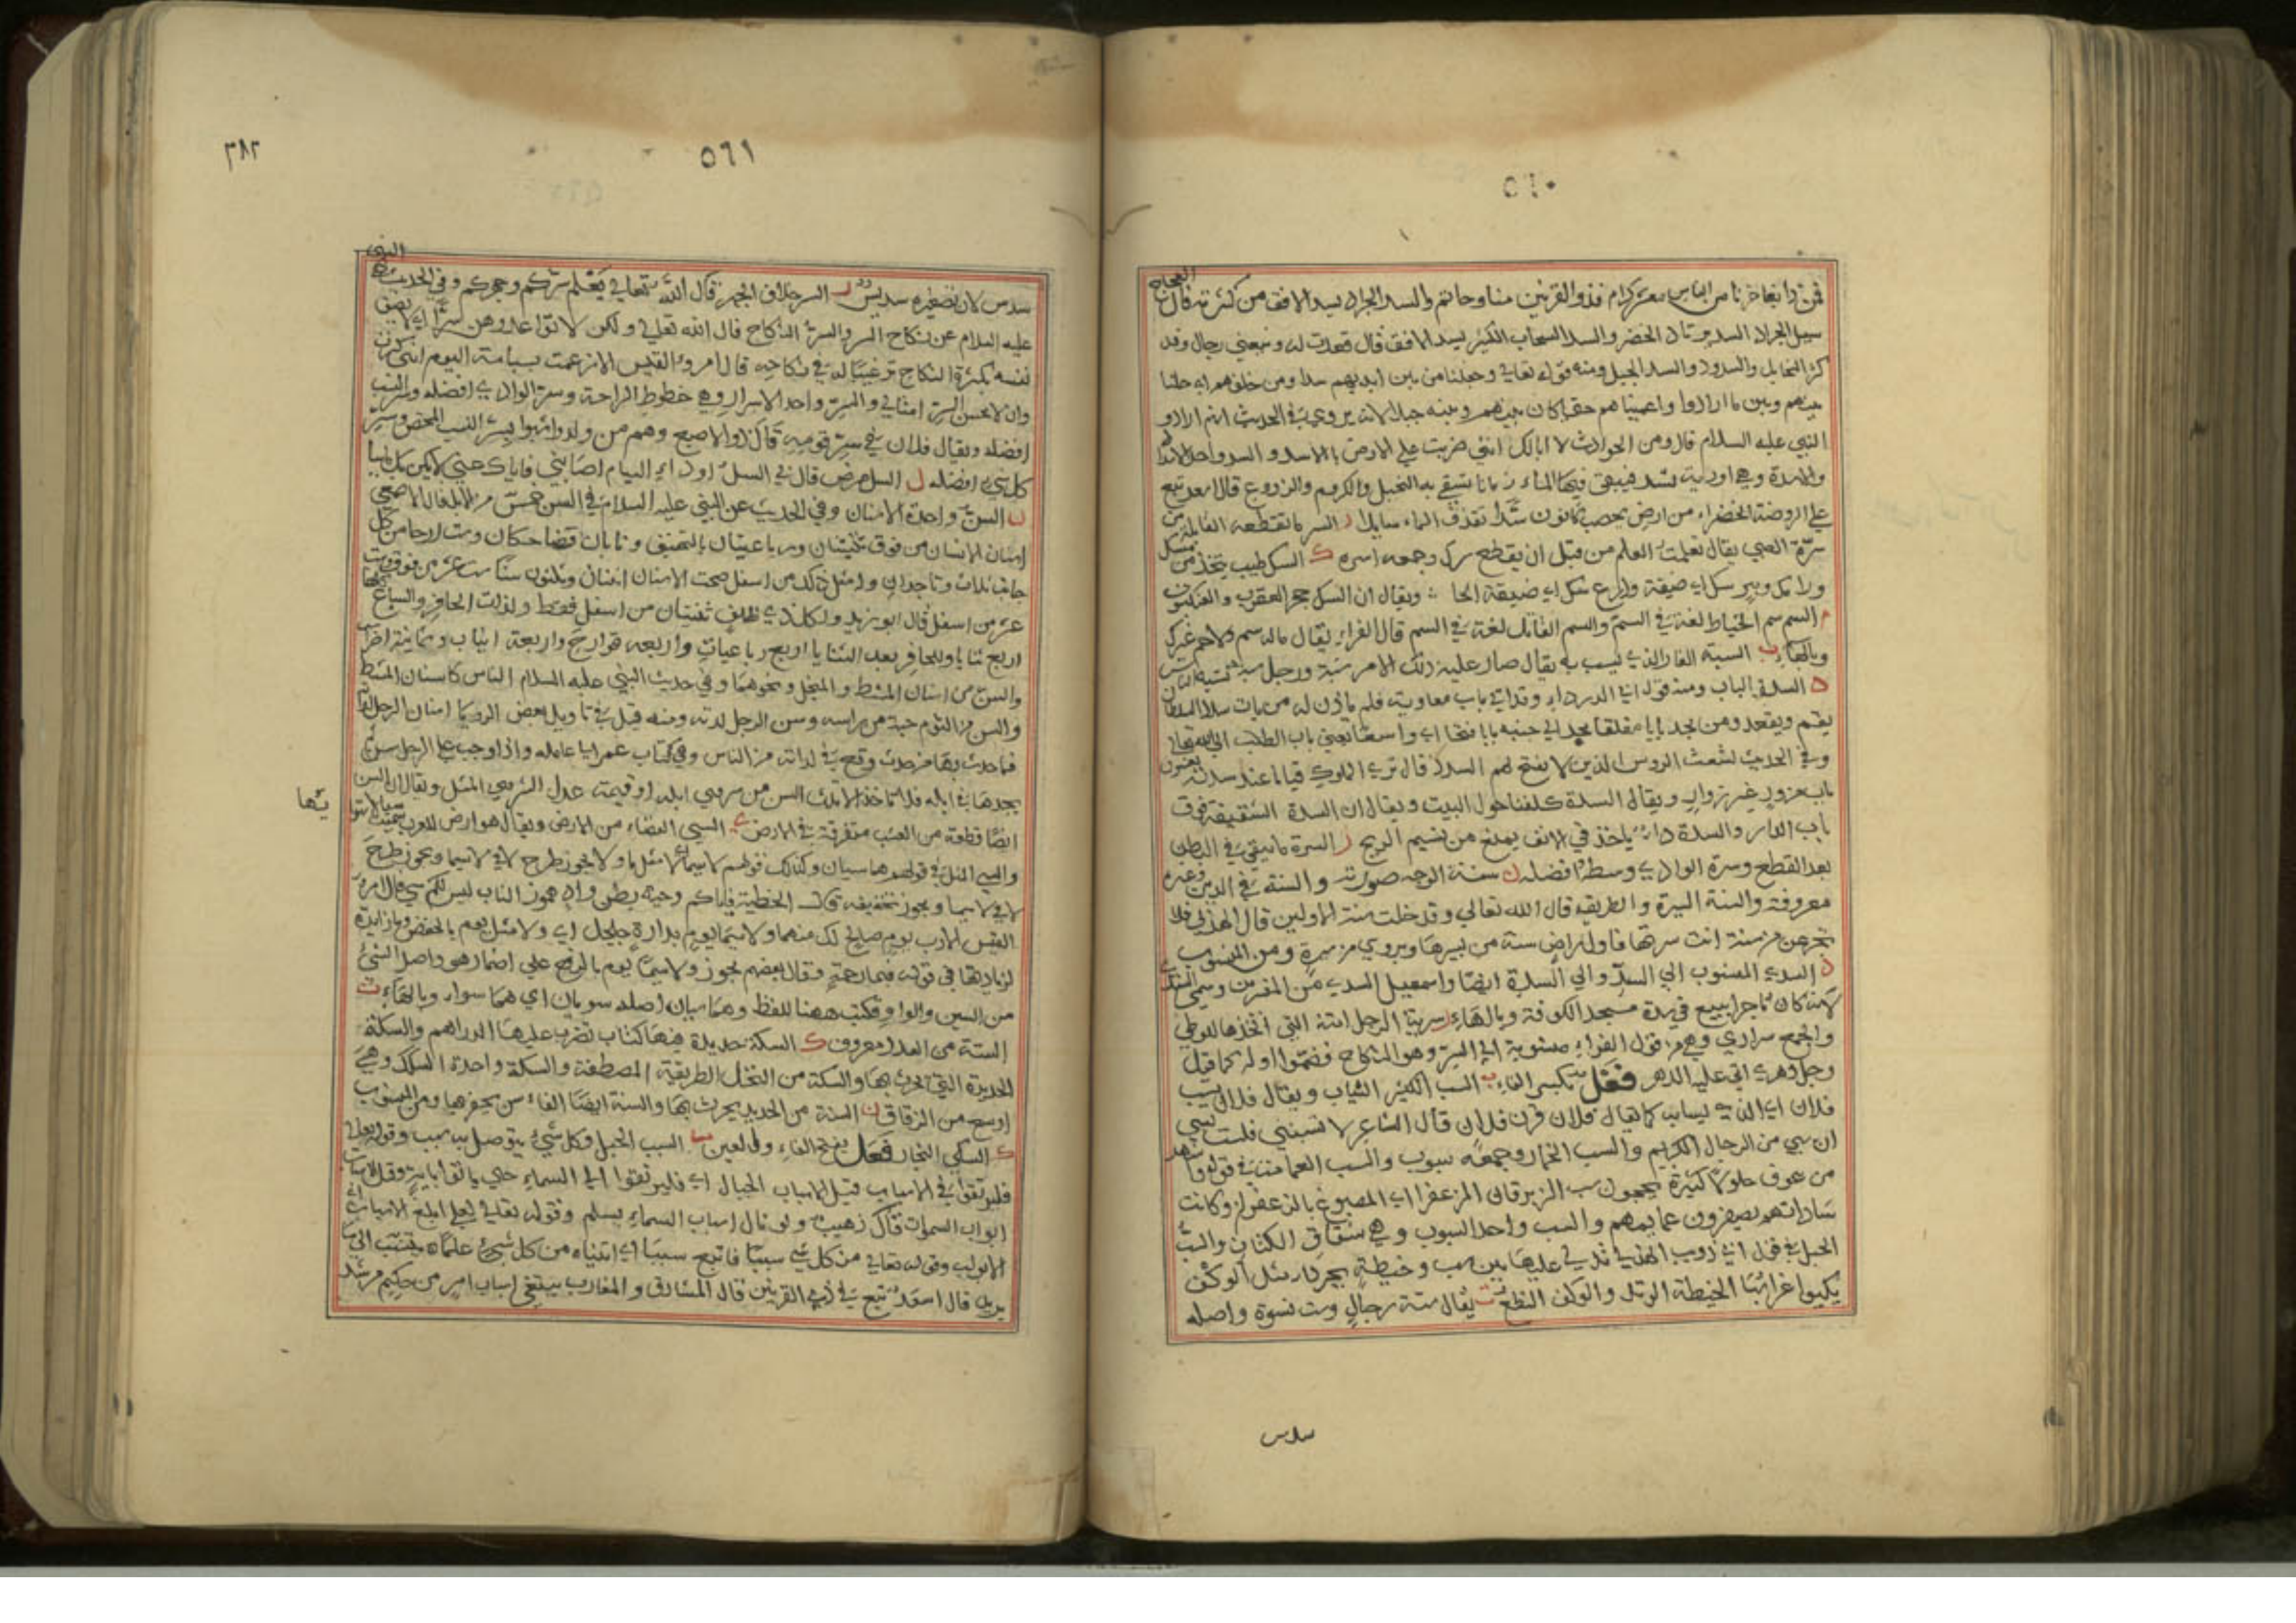 ٥٦٠
فمن ذا يفاخرنا من الناس معشر كرام فذو القرنين منا وحاتم والسد الجراد يسد الافق من كثرته قال العجاج
سيل الجراد السد يرتاد الخضر والسد السحاب الكثير يسد الافق قال قعدت له وشيعني رجال وقد
كثر المخايل والسدود والسد الجبل ومنه قوله تعالى وجعلنا من بين ايديهم سدا ومن خلفهم اي حلنا
بينهم وبين ما ارادوا واعميناهم حقيقا كان بينهم وبينه جبلا لانه يروى في الحديث انهم ارادوا
النبي عليه السلام قال ومن الحوادث لا ابالك انني ضربت علي الارض بالاسداد والسد واحد
والاسدة وهي اودية تسد فيبقى فيها الماء زمانا يسقى به النخيل والكروم والزروع قال اسعد تبع
علي الروضة الخضراء من ارض يحصب ثمانون سدا تقذف الماء سايلا ر السر ما تقطعه القابلة من
سرة الصبي يقال تعلمت العلم من قبل ان يقطع سرك وجمعه اسره ك السك طيب يتخذ من مسك
ورامك وبير سك اي ضيقة ودرع سك اي ضيقة الحلق ويقال ان السك جحر العقرب والعنكبوت
م السم سم الخياط لغة في السم والسم القاتل لغة في السم قال الفراء يقال ماله سم ولا حم غيرك
وبالهاء ب السبة العار الذي يسب به يقال صار عليه ذلك الامر سبة ورجل سبة تسبه الناس
د السدة الباب ومنه قول ابي الدرداء وقد اتي باب معاوية فلم ياذن له من يات سدد السلطان
يقم ويقعد ومن يجد بابا مغلقا يجد الي جنبه بابا فتحا اي واسعا يعني باب الطلب الي الله تعالى
وفي الحديث لشعث الرؤس الذين لا يفتح لهم السدد قال ترى الملوك قياما عند سدته يغشون
باب مزور غير زوار ويقال السدة كلفنا حول البيت ويقال ان السدة السقيفة فوق
باب الدار والسدة داء ياخذ في الانف يمنع من نسيم الريح ر السرة ما يبقى في البطن
بعد القطع وسرة الوادي وسطه وافضله ن سنة الوجه صورته والسنة في الدين وغيره
معروفة والسنة السيرة والطريقة قال الله تعالى وقد خلت سنة الاولين قال الهذلي فلا
تجزعن من سنة انت سرتها فاول راض سنة من يسيرها ويروي من سيرة ومن المنسوب
د السدي المنسوب الي السد والي السدة ايضا واسمعيل السدي من المفسرين وسمي السدي
لانه كان تاجرا يبيع في سدة مسجد الكوفة وبالهاء ر سرية الرجل امته التي اتخذها للوطي
والجمع سراري وهي من قول الفراء منسوبة الي السر وهو النكاح فضموا اوله كما قيل
رجل دهري اتي عليه الدهر فعل بكسر الفاء ب السب الكثير السباب ويقال فلان سب
فلان اي الذي يسابه كما يقال فلان قرن فلان قال الشاعر لا تسبنني فلست بسبي
ان سبي من الرجال الكريم والسب الخمار وجمعه سبوب والسب العمامة في قوله واشهد
من عوف حلولا كثيرة يحجون سب الزبرقان المزعفرا اي المصبوغ بالزعفران وكانت
ساداتهم يصفرون عمايمهم والسب واحد السبوب وهي شقاق الكتان والسب
الحبل في قول ابي ذويب الهذلي تدلى عليها بين سب وخيطة بجرداء مثل الوكف
يكبوا غرابها الخيطة الوتد والوكف النطع ت يقال ستة رجال وست نسوة واصله
سدس
٥٦١
٣٨٢
سدس لان تصغيره سديس ر السر خلاف الجهر قال الله تعالى يعلم سركم وجهركم وفي الحديث نهى النبي
عليه السلام عن نكاح السر والسر النكاح قال الله تعالى ولكن لا تواعدوهن سرا اي لا يصف
نفسه بكثرة النكاح ترغيبا له في نكاحه قال امرؤ القيس الا زعمت بسباسة اليوم انني كبرت
وان لا يحسن السر امثالي والسر واحد الاسرار وهي خطوط الراحة وسر الوادي افضله وسر النسب
افضله ويقال فلان في سر قومه قال ذو الاصبع وهم من ولدوا اشبوا بسر النسب المحض وسر
كل شيء افضله ل السل مرض قال بي السل او داء الهيام اصابني فاياك عني لا يكن بك ما بيا
ن السن واحدة الاسنان وفي الحديث عن النبي عليه السلام في السن خمس من الابل قال الاصمعي
اسنان الانسان من فوق ثنيتان ورباعيتان بالتخفيف ونابان وضاحكان وست ارحا من كل
جانب ثلاث وناجذان ومثل ذلك من اسفل صحت الاسنان اثنان وثلثون سنا ست عشر من فوق وست
عشر من اسفل قال ابو زيد ولكل ذي ظلف ثنيتان من اسفل فقط ولذوات الحافر والسباع كلها
اربع ثنايا وللحافر بعد الثنايا اربع رباعيات واربعة قوارح واربعة انياب وثمانية اضراس
والسن من اسنان المشط والمنجل ونحوهما وفي حديث النبي عليه السلام الناس كاسنان المشط
والسن من الثوم حبة من راسه وسن الرجل لدته ومنه قيل في تاويل بعض الرؤيا اسنان الرجل لداته
فما حدث بها من حدث وقع في لداته من الناس وفي كتاب عمر الي عامله واذا وجب علي الرجل سن لم
يجدها في ابله فلا تاخذ الا تلك السن من شروى ابله او قيمة عدل الشروى المثل ويقال ان السن
ايضا قطعة من العشب متفرقة في الارض ي السي الفضاء من الارض ويقال هو ارض للعرب سميت سيا لاستوا
يها
والسي المثل في قولهم هما سيان وكذلك قولهم لاسيما اي لا مثل ما ولا يجوز طرح لا في لاسيما ويجوز طرح
لا في لاسيما ويجوز تخفيفه قال الحطيئة فاياكم وحية بطن واد هموز الناب ليس لكم بسي قال امرؤ
القيس الا رب يوم صالح لك منهما ولاسيما يوم بدارة جلجل اي ولا مثل يوم بالخفض وما زايدة
لزيادتها في قوله فبما رحمة وقال بعضهم يجوز ولاسيما يوم بالرفع علي اضمار هو واصل السي
من السين والواو فكتب ههنا للفظ وهما سيان اصله سويان اي هما سواء وبالهاء ت
الستة من العدد معروف ك السكة حديدة فيها كتاب تضرب عليها الدراهم والسكة
الحديدة التي يحرث بها والسكة من النخل الطريقة المصطفة والسكة واحدة السكك وهي
اوسع من الزقاق ن السنة من الحديد يحرث بها والسنة ايضا الفاس يحفر بها ومن المنسوب
ك السكي النجار فعل بفتح الفاء والعين ب السبب الحبل وكل شيء يتوصل به سبب وقوله تعالى
فليرتقوا في الاسباب قيل الاسباب الحبال اي فليرتقوا الي السماء حتى ياتوا باية وقيل الاسباب
ابواب السموات قال زهير ولو نال اسباب السماء بسلم وقوله تعالى لعلي ابلغ الاسباب اي
الابواب وقوله تعالى من كل شي سببا فاتبع سببا اي اتيناه من كل شيء علما يتسبب الي ما
يريد قال اسعد تبع في ذي القرنين قال المشارق والمغارب يبتغي اسباب امر من حكيم مرشد